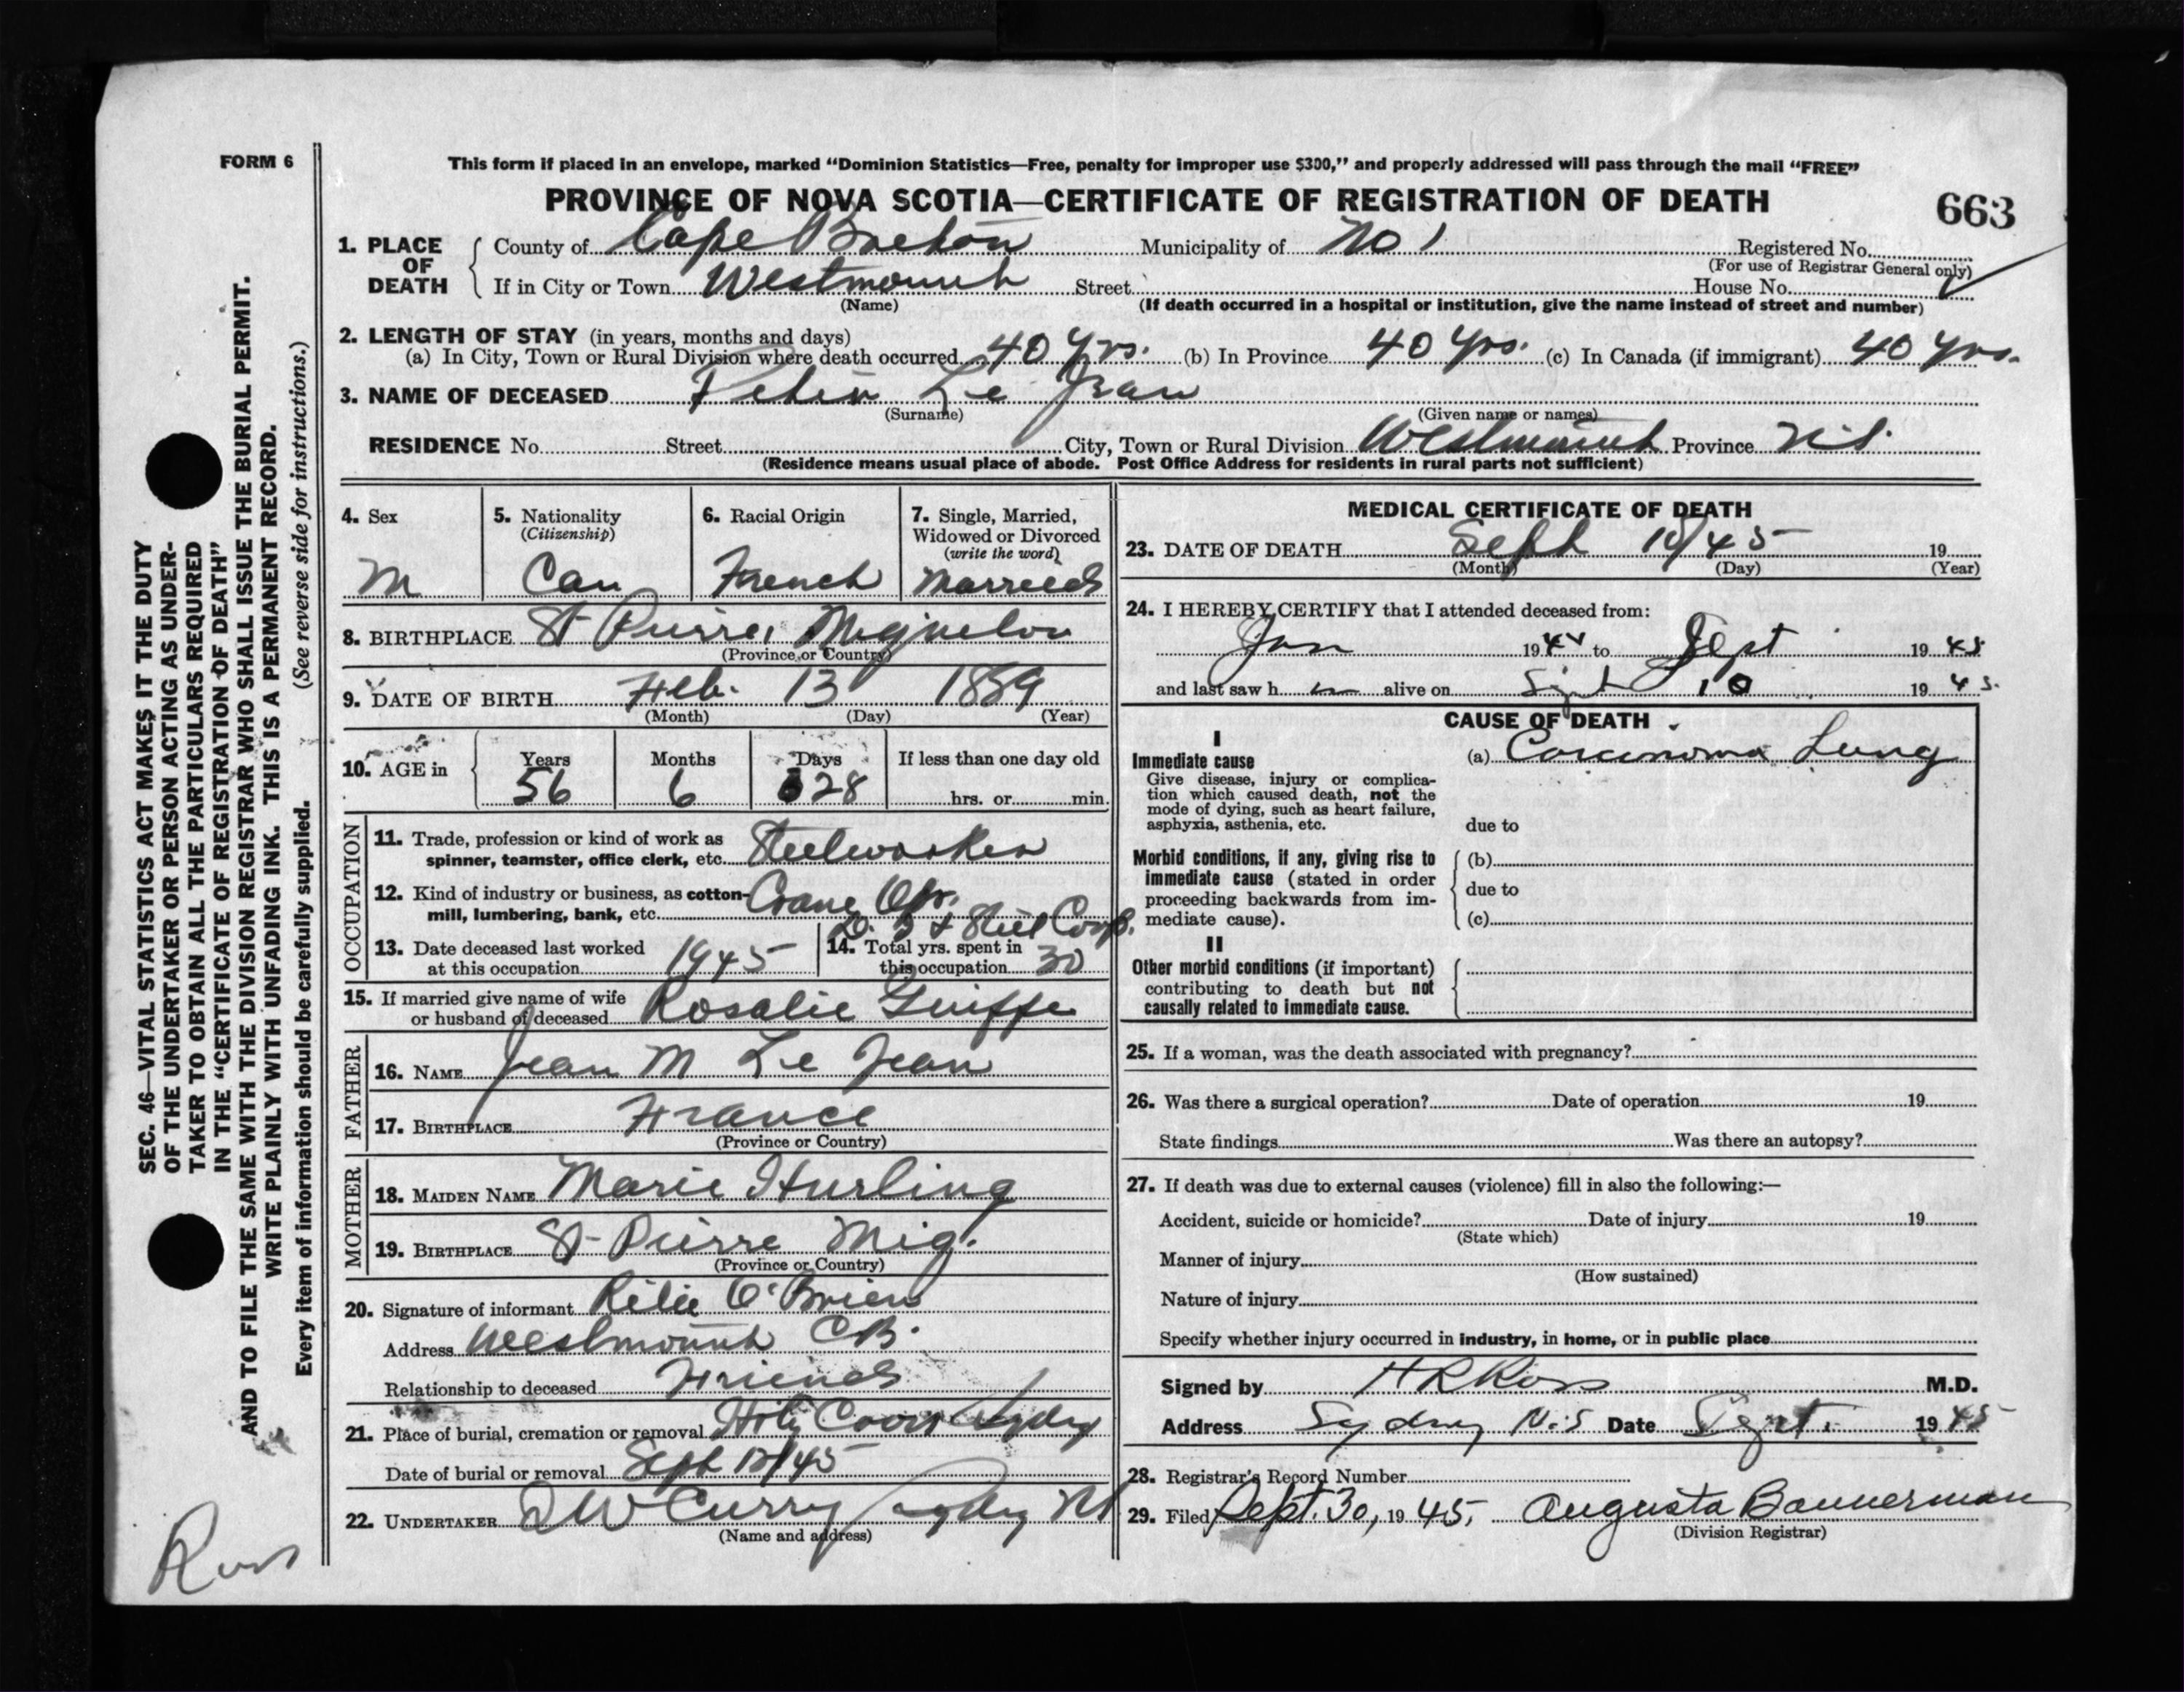 FORM 6
This form if placed in an envelope, marked “Dominion Statistics—Free, penalty for improper use $300,” and properly addressed will pass through the mail “FREE”
PROVINCE OF NOVA SCOTIA—CERTIFICATE OF REGISTRATION OF DEATH
663
1. PLACE OF DEATH
County of Cape Breton Municipality of No 1 Registered No.
(For use of Registrar General only)
If in City or Town Westmount Street House No.
(Name)
(If death occurred in a hospital or institution, give the name instead of street and number)
2. LENGTH OF STAY (in years, months and days)
(a) In City, Town or Rural Division where death occurred 40 Yrs. (b) In Province 40 Yrs. (c) In Canada (if immigrant) 40 Yrs.
3. NAME OF DECEASED Le Jean
(Surname) (Given name or names)
RESIDENCE No. Street City, Town or Rural Division Westmount Province N.S.
(Residence means usual place of abode. Post Office Address for residents in rural parts not sufficient)
4. Sex
M
5. Nationality
(Citizenship)
Can
6. Racial Origin
French
7. Single, Married,
Widowed or Divorced
(write the word)
Married
8. BIRTHPLACE St Pierre, Miquelon
(Province or Country)
9. DATE OF BIRTH Feb. 13 1889
(Month) (Day) (Year)
10. AGE in
Years Months Days If less than one day old
56 6 28 hrs. or min.
OCCUPATION
11. Trade, profession or kind of work as
spinner, teamster, office clerk, etc. Steelworker
12. Kind of industry or business, as cotton-
mill, lumbering, bank, etc. Crane Opr.
D. I & Steel Corp.
13. Date deceased last worked
at this occupation 1945
14. Total yrs. spent in
this occupation 30
15. If married give name of wife
or husband of deceased Rosalie
FATHER
16. NAME Jean M Le Jean
17. BIRTHPLACE France
(Province or Country)
MOTHER
18. MAIDEN NAME Marie Hurling
19. BIRTHPLACE St Pierre Miq.
(Province or Country)
20. Signature of informant O'Brien
Address Westmount C.B.
Relationship to deceased Friend
21. Place of burial, cremation or removal Holy Cross Sydney
Date of burial or removal Sept 12/45
22. UNDERTAKER D W Curry Sydney NS
(Name and address)
MEDICAL CERTIFICATE OF DEATH
23. DATE OF DEATH Sept 10/45 19
(Month) (Day) (Year)
24. I HEREBY CERTIFY that I attended deceased from:
Jan 1944 to Sept 1945
and last saw h im alive on Sept 10 1945.
CAUSE OF DEATH
I
Immediate cause
Give disease, injury or complica-
tion which caused death, not the
mode of dying, such as heart failure,
asphyxia, asthenia, etc.
(a) Carcinoma Lung
due to
Morbid conditions, if any, giving rise to
immediate cause (stated in order
proceeding backwards from im-
mediate cause).
(b)
due to
(c)
II
Other morbid conditions (if important)
contributing to death but not
causally related to immediate cause.
25. If a woman, was the death associated with pregnancy?
26. Was there a surgical operation? Date of operation 19
State findings Was there an autopsy?
27. If death was due to external causes (violence) fill in also the following:—
Accident, suicide or homicide? Date of injury 19
(State which)
Manner of injury
(How sustained)
Nature of injury
Specify whether injury occurred in industry, in home, or in public place
Signed by H R Ross M.D.
Address Sydney N.S Date Sept. 1945
28. Registrar's Record Number
29. Filed Sept. 30, 1945, Augusta Bannerman
(Division Registrar)
SEC. 46—VITAL STATISTICS ACT MAKES IT THE DUTY
OF THE UNDERTAKER OR PERSON ACTING AS UNDER-
TAKER TO OBTAIN ALL THE PARTICULARS REQUIRED
IN THE “CERTIFICATE OF REGISTRATION OF DEATH”
AND TO FILE THE SAME WITH THE DIVISION REGISTRAR WHO SHALL ISSUE THE BURIAL PERMIT.
WRITE PLAINLY WITH UNFADING INK. THIS IS A PERMANENT RECORD.
Every item of information should be carefully supplied. (See reverse side for instructions.)
Ross